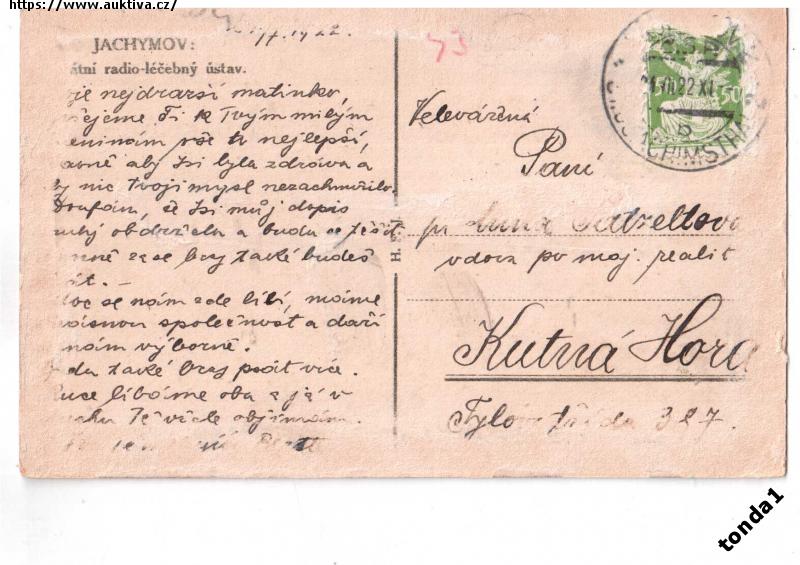 https://www.auktiva.cz/
1922
JACHYMOV:
átní radio-léčebný ústav.
je nejdrarší matinko,
řejeme Ti k Tvým milým
eninám vše to nejlepší,
avně aby jsi byla zdráva a
by nic Tvoji mysl nezachmuřilo.
Doufám, že jsi můj dopis
obdržela a budu se těšit
že zase brzy také budeš
át.-
se nám zde líbí, máme
společnost a daří
nám výborně.
také brzy psát více.
uce líbáme oba a já v
Tě vřele objímám.
53
Velevážená
Paní
pí Anna
vdova po maj. realit
Kutná Hora
Tylova třída 327.
H. &
50
22 XI
JACHIMSTHAL
tonda1